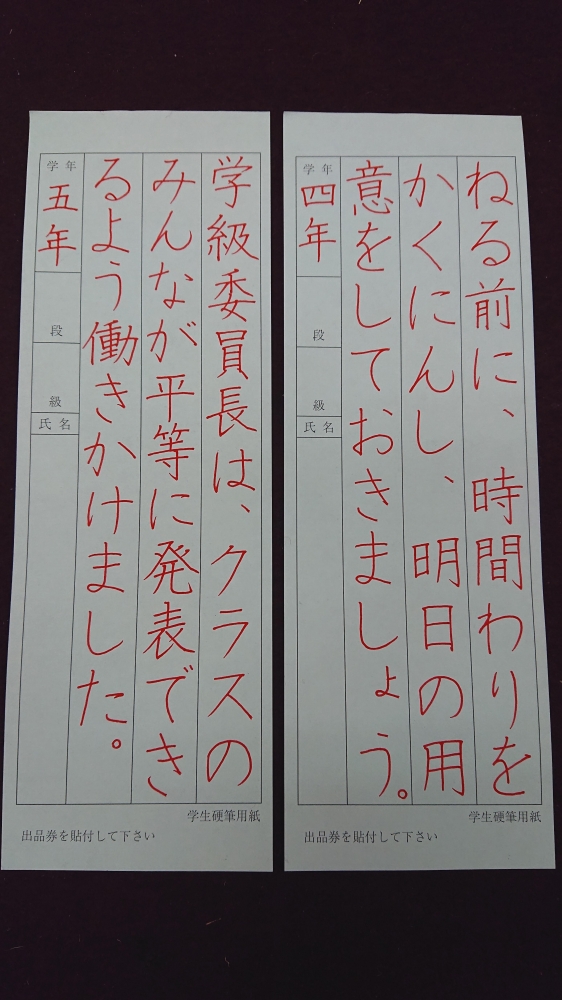 ねる前に、時間わりを
かくにんし、明日の用
意をしておきましょう。
学年
四年
段
級
氏名
学生硬筆用紙
出品券を貼付して下さい
学級委員長は、クラスの
みんなが平等に発表でき
るよう働きかけました。
学年
五年
段
級
氏名
学生硬筆用紙
出品券を貼付して下さい